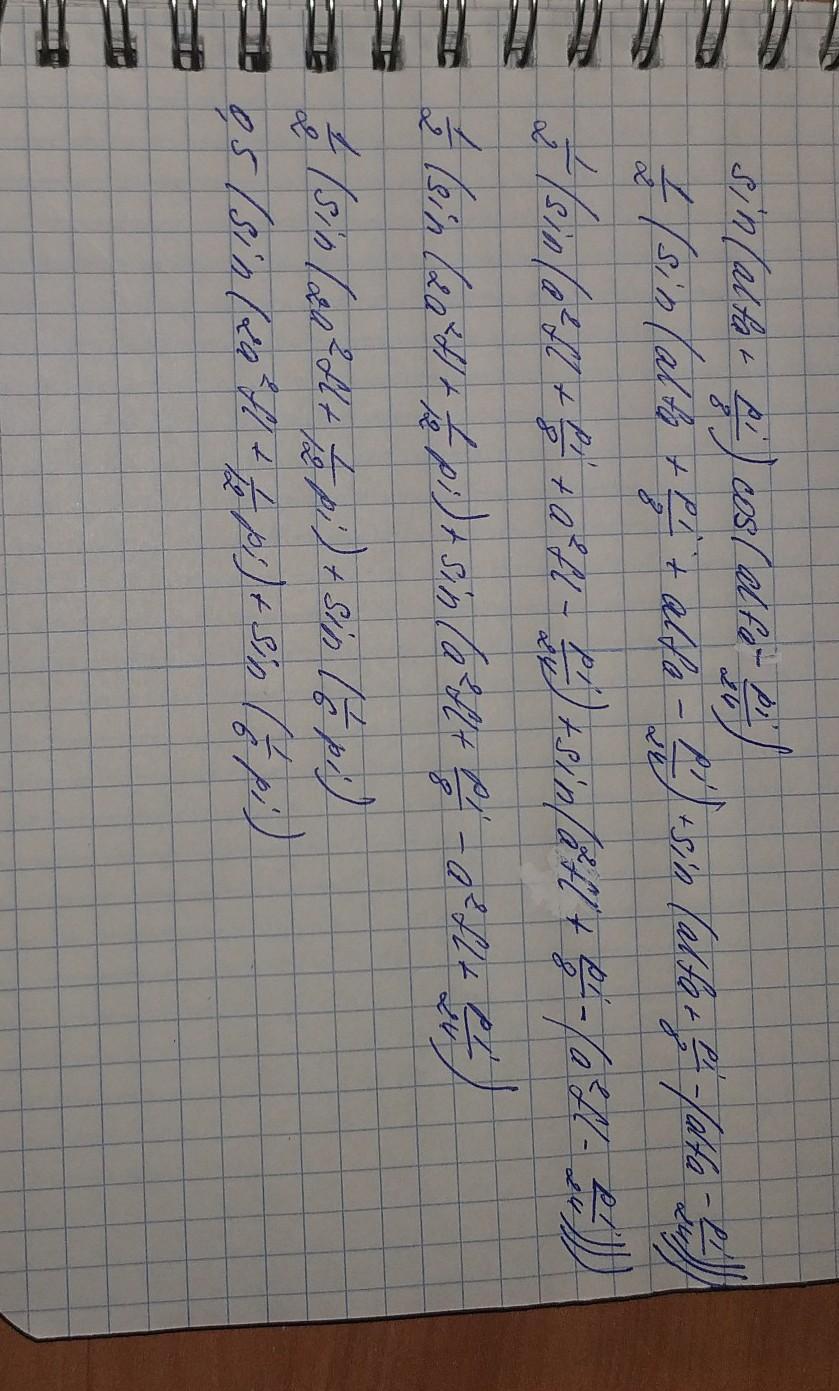 sin(alfa + pi/8) cos(alfa - pi/24)
1/2 (sin(alfa + pi/8 + alfa - pi/24) + sin(alfa + pi/8 - (alfa - pi/24)))
1/2 (sin(a²fl + pi/8 + a²fl - pi/24) + sin(a²fl + pi/8 - (a²fl - pi/24)))
1/2 (sin(2a²fl + 1/12 pi) + sin(a²fl + pi/8 - a²fl + pi/24)
1/2 (sin(2a²fl + 1/12 pi) + sin(1/6 pi)
0,5 (sin(2a²fl + 1/12 pi) + sin(1/6 pi)